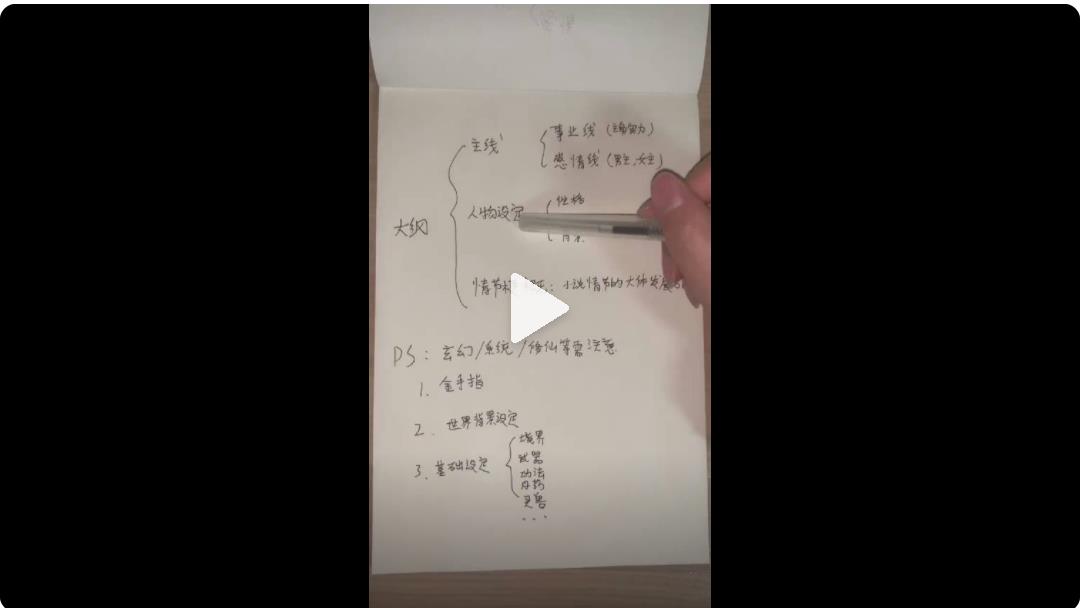 主线
事业线（主角智力）
感情线（男主，女主）
大纲
人物设定
性格
情节
：小说情节的大体发展
PS：玄幻/系统/修仙等需注意
1. 金手指
2. 世界背景设定
3. 基础设定
境界
武器
功法
丹药
灵兽
...